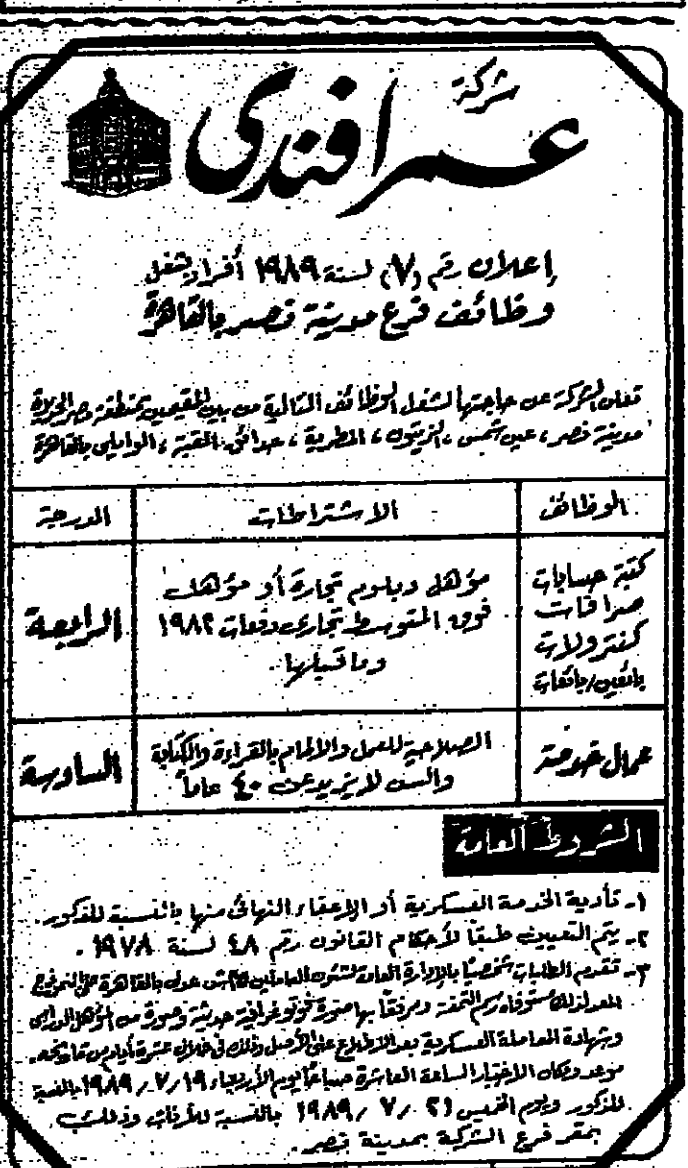 شركة
عمر افندى
إعلان رقم (٧) لسنة ١٩٨٩ أفراد بشغل
وظائف فرع مدينة نصر بالقاهرة
تعلن الشركة عن حاجتها لشغل الوظائف التالية من بين المقيمين بمنطقة مصر الجديدة
مدينة نصر، عين شمس، الزيتون، المطرية، حدائق القبة، الوايلى بالقاهرة
الوظائف
الاشتراطات
الدرجة
كتبة حسابات
صرافات
كنترولات
بائعين/بائعات
مؤهل دبلوم تجارة أو مؤهل
فوق المتوسط تجارى دفعات ١٩٨٢
وما قبلها.
الرابعة
عمال خدمة
الصلاحية للعمل والالمام بالقراءة والكتابة
والسن لا يزيد عن ٤٠ عاماً
السادسة
الشروط العامة
١- تأدية الخدمة العسكرية أو الإعفاء النهائى منها بالنسبة للذكور.
٢- يتم التعيين طبقاً لأحكام القانون رقم ٤٨ لسنة ١٩٧٨.
٣- تقدم الطلبات شخصياً بالإدارة العامة لشئون العاملين عدلى بالقاهرة على النموذج
المعد لذلك مستوفاه رسم التمغة ومرفقاً بها صورة فوتوغرافية حديثة وصورة من المؤهل الدراسى
وشهادة المعاملة العسكرية بعد الاطلاع على الأصل وذلك فى خلال عشرة أيام من تاريخه.
موعد ومكان الاختبار الساعة العاشرة صباحاً يوم الأربعاء ١٩٨٩/٧/١٩ بالنسبة
للذكور ويوم الخميس ١٩٨٩/٧/٢١ بالنسبة للأناث وذلك
بمقر فرع الشركة بمدينة نصر.